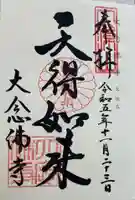 奉拝
令和五年十一月二十三日
天得如来
大念佛寺